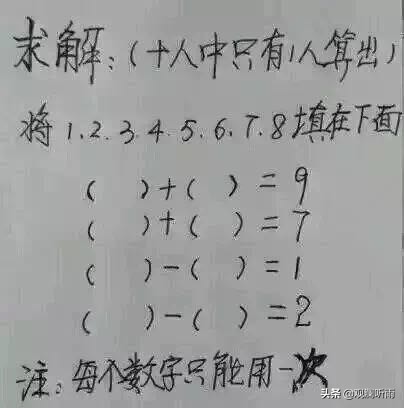 求解:(十人中只有1人算出)
将1.2.3.4.5.6.7.8填在下面
( )+( )=9
( )+( )=7
( )-( )=1
( )-( )=2
注:每个数字只能用一次
头条@观棋听雨